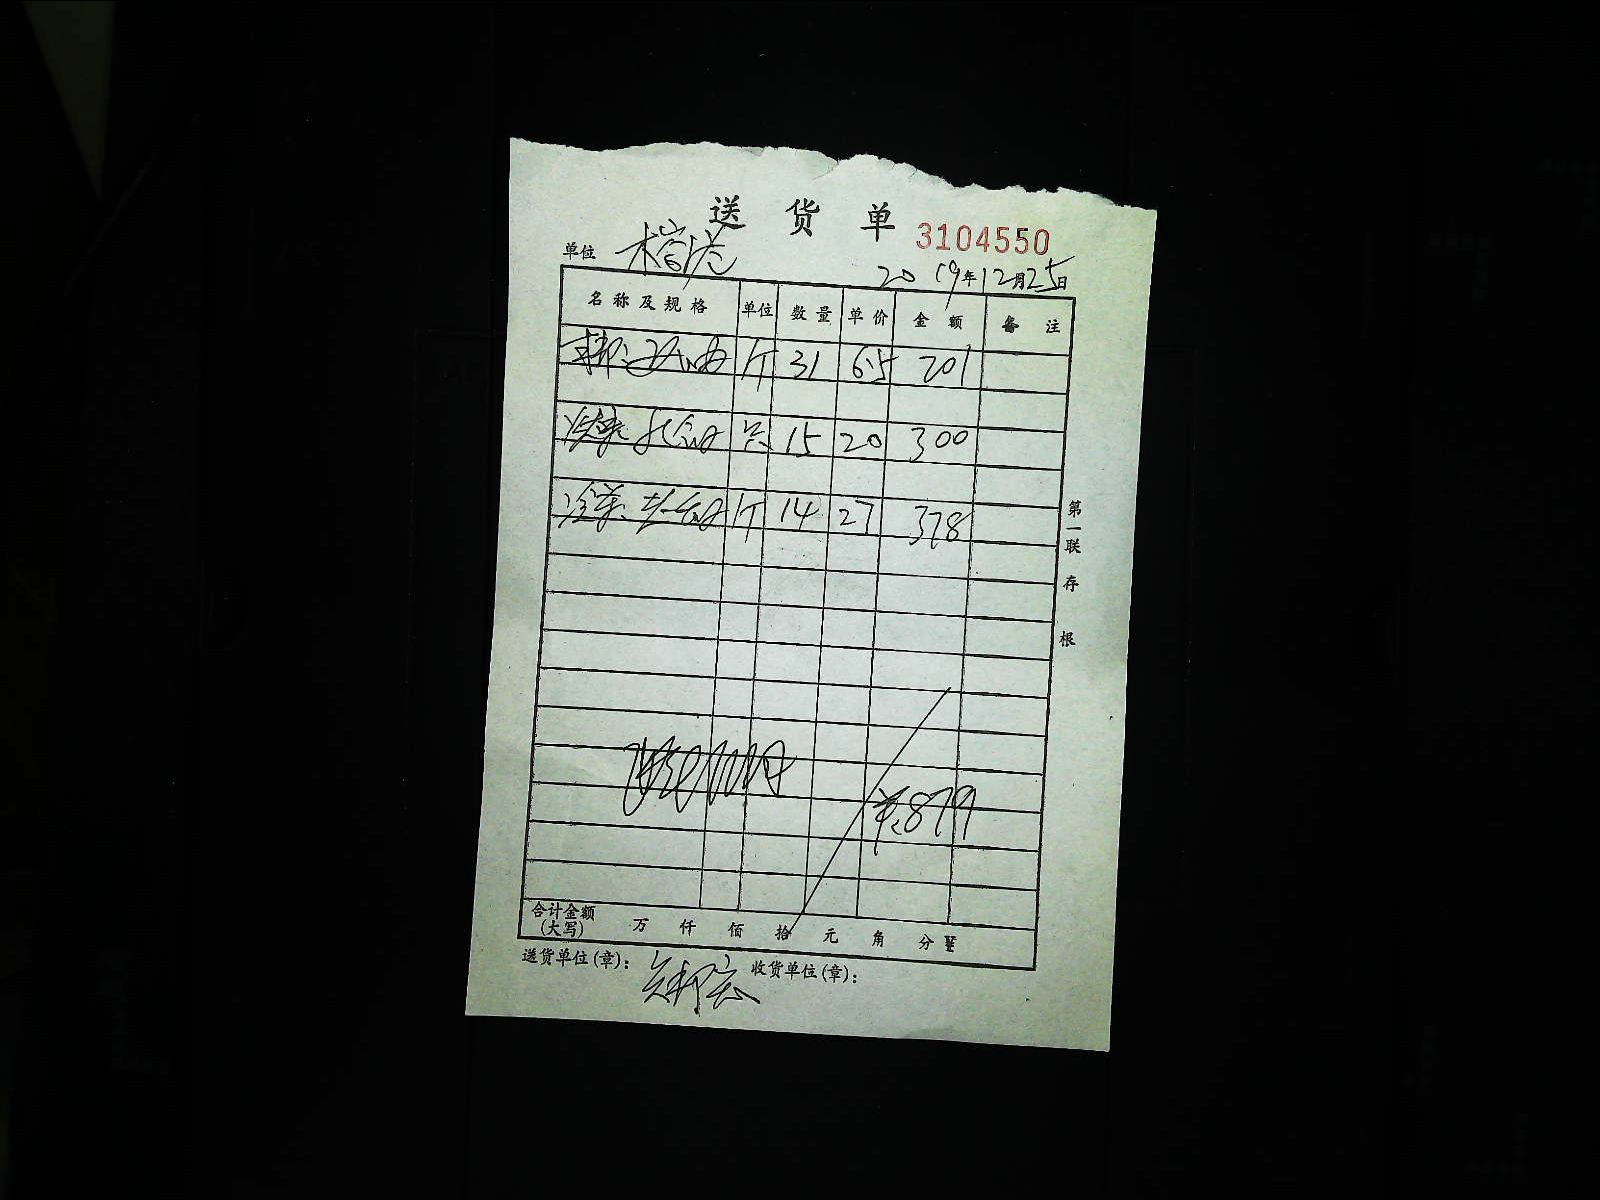 送货单 3104550
单位 2019年12月25日
名称及规格 单位 数量 单价 金额 备注
斤 31 6.5 201
只 15 20 300
冷菜: 斤 14 27 378
¥:879
合计金额(大写) 万 仟 佰 拾 元 角 分 ¥
送货单位(章): 收货单位(章):
第一联 存根